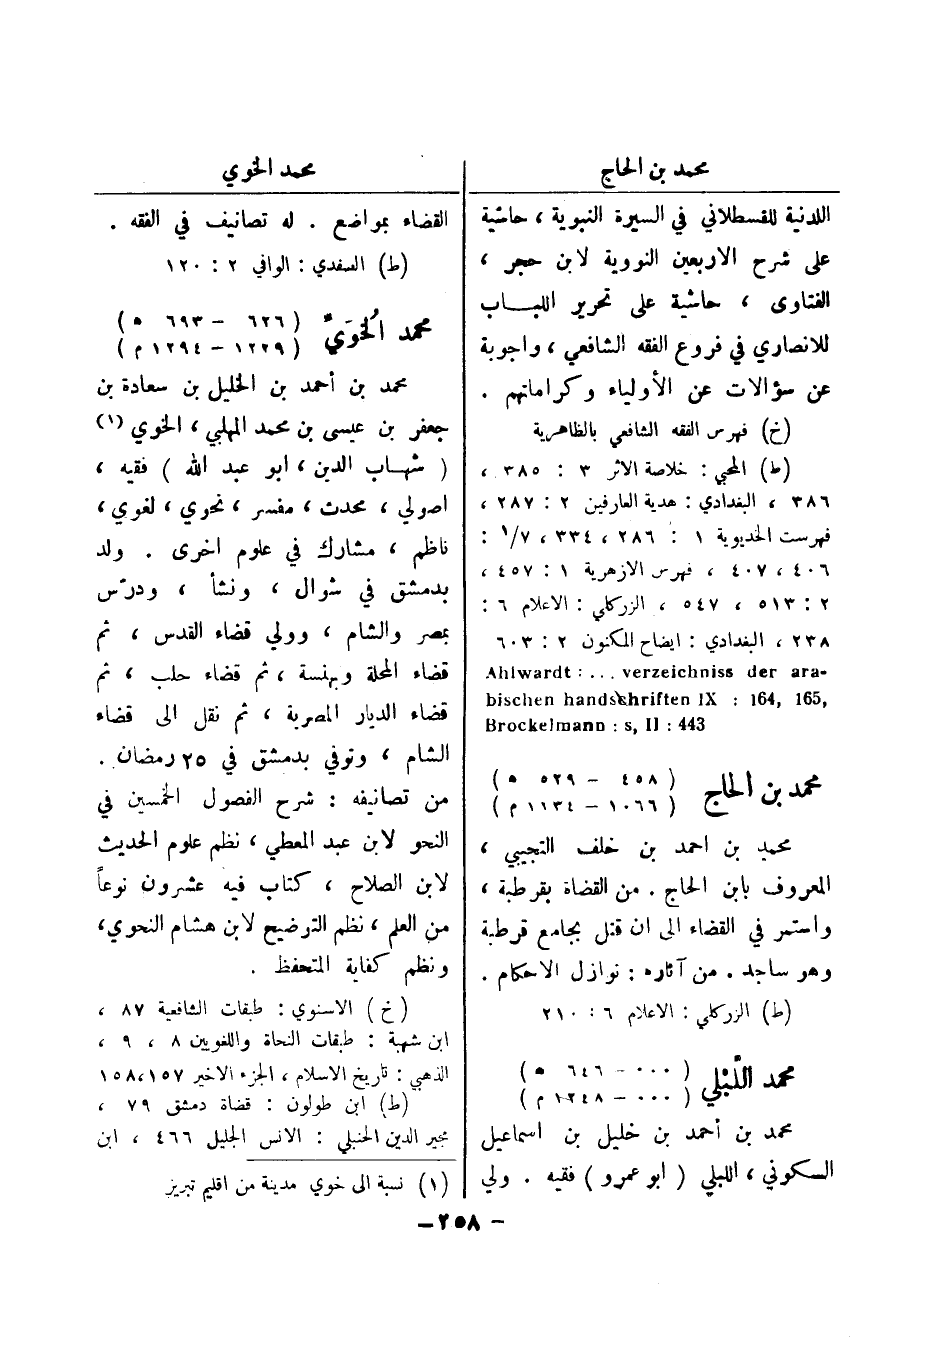 محمد بن الحاج
اللدنية للقسطلاني في السيرة النبوية ، حاشية
على شرح الاربعين النووية لابن حجر ،
الفتاوى ، حاشية على تحرير اللبـــاب
للانصاري في فروع الفقه الشافعي ، واجوبة
عن سؤالات عن الأولياء وكراماتهم .
(خ) فهرس الفقه الشافعي بالظاهرية
(ط) المحبي : خلاصة الاثر ٣ : ٣٨٥ ،
٣٨٦ ، البغدادي : هدية العارفين ٢ : ٢٨٧ ،
فهرست الخديوية ١ : ٢٨٦ ، ٣٣٤ ، ٧/١ :
٤٠٦ ، ٤٠٧ ، فهرس الازهرية ١ : ٤٥٧ ،
٢ : ٥١٣ ، ٥٤٧ ، الزركلي : الاعلام ٦ :
٢٣٨ ، البغدادي : ايضاح المكنون ٢ : ٦٠٣
Ahlwardt : ... verzeichniss der ara-
bischen handschriften IX : 164, 165,
Brockelmann : s, II : 443
محمد بن الحاج ( ٤٥٨ – ٥٢٩ ه )
( ١٠٦٦ – ١١٣٤ م )
محمد بن احمد بن خلف التجيبي ،
المعروف بابن الحاج . من القضاة بقرطبة ،
واستمر في القضاء الى ان قتل بجامع قرطبة
وهو ساجد . من آثاره : نوازل الاحكام .
(ط) الزركلي : الاعلام ٦ : ٢١٠
محمد اللَّبْلي ( ٠٠٠ – ٦٤٦ ه )
( ٠٠٠ – ١٢٤٨ م )
محمد بن أحمد بن خليل بن اسماعيل
السكوني ، اللبلي ( ابو عمرو ) فقيه . ولي
محمد الخوي
القضاء بمواضع . له تصانيف في الفقه .
(ط) الصفدي : الوافي ٢ : ١٢٠
محمد الخُوَيّ ( ٦٢٦ – ٦٩٣ ه )
( ١٢٢٩ – ١٢٩٤ م )
محمد بن أحمد بن الخليل بن سعادة بن
جعفر بن عيسى بن محمد المهلبي ، الخوي (١)
( شهاب الدين ، ابو عبد الله ) فقيه ،
اصولي ، محدث ، مفسر ، نحوي ، لغوي ،
ناظم ، مشارك في علوم اخرى . ولد
بدمشق في شوال ، ونشأ ، ودرّس
بمصر والشام ، وولي قضاء القدس ، ثم
قضاء المحلة وبهنسة ، ثم قضاء حلب ، ثم
قضاء الديار المصرية ، ثم نقل الى قضاء
الشام ، وتوفي بدمشق في ٢٥ رمضان .
من تصانيفه : شرح الفصول الخمسين في
النحو لابن عبد المعطي ، نظم علوم الحديث
لابن الصلاح ، كتاب فيه عشرون نوعاً
من العلم ، نظم التوضيح لابن هشام النحوي،
ونظم كفاية المتحفظ .
(خ) الاسنوي : طبقات الشافعية ٨٧ ،
ابن شهبة : طبقات النحاة واللغويين ٨ ، ٩ ،
الذهبي : تاريخ الاسلام ، الجزء الاخير ١٥٧،١٥٨
(ط) ابن طولون : قضاة دمشق ٧٩ ،
مجير الدين الحنبلي : الانس الجليل ٤٦٦ ، ابن
(١) نسبة الى خوي مدينة من اقليم تبريز
– ٢٥٨ –